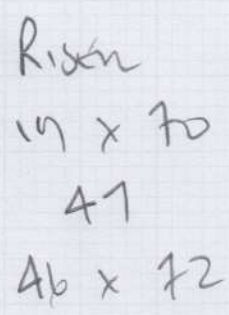 Risen
19 x 70
47
46 x 72